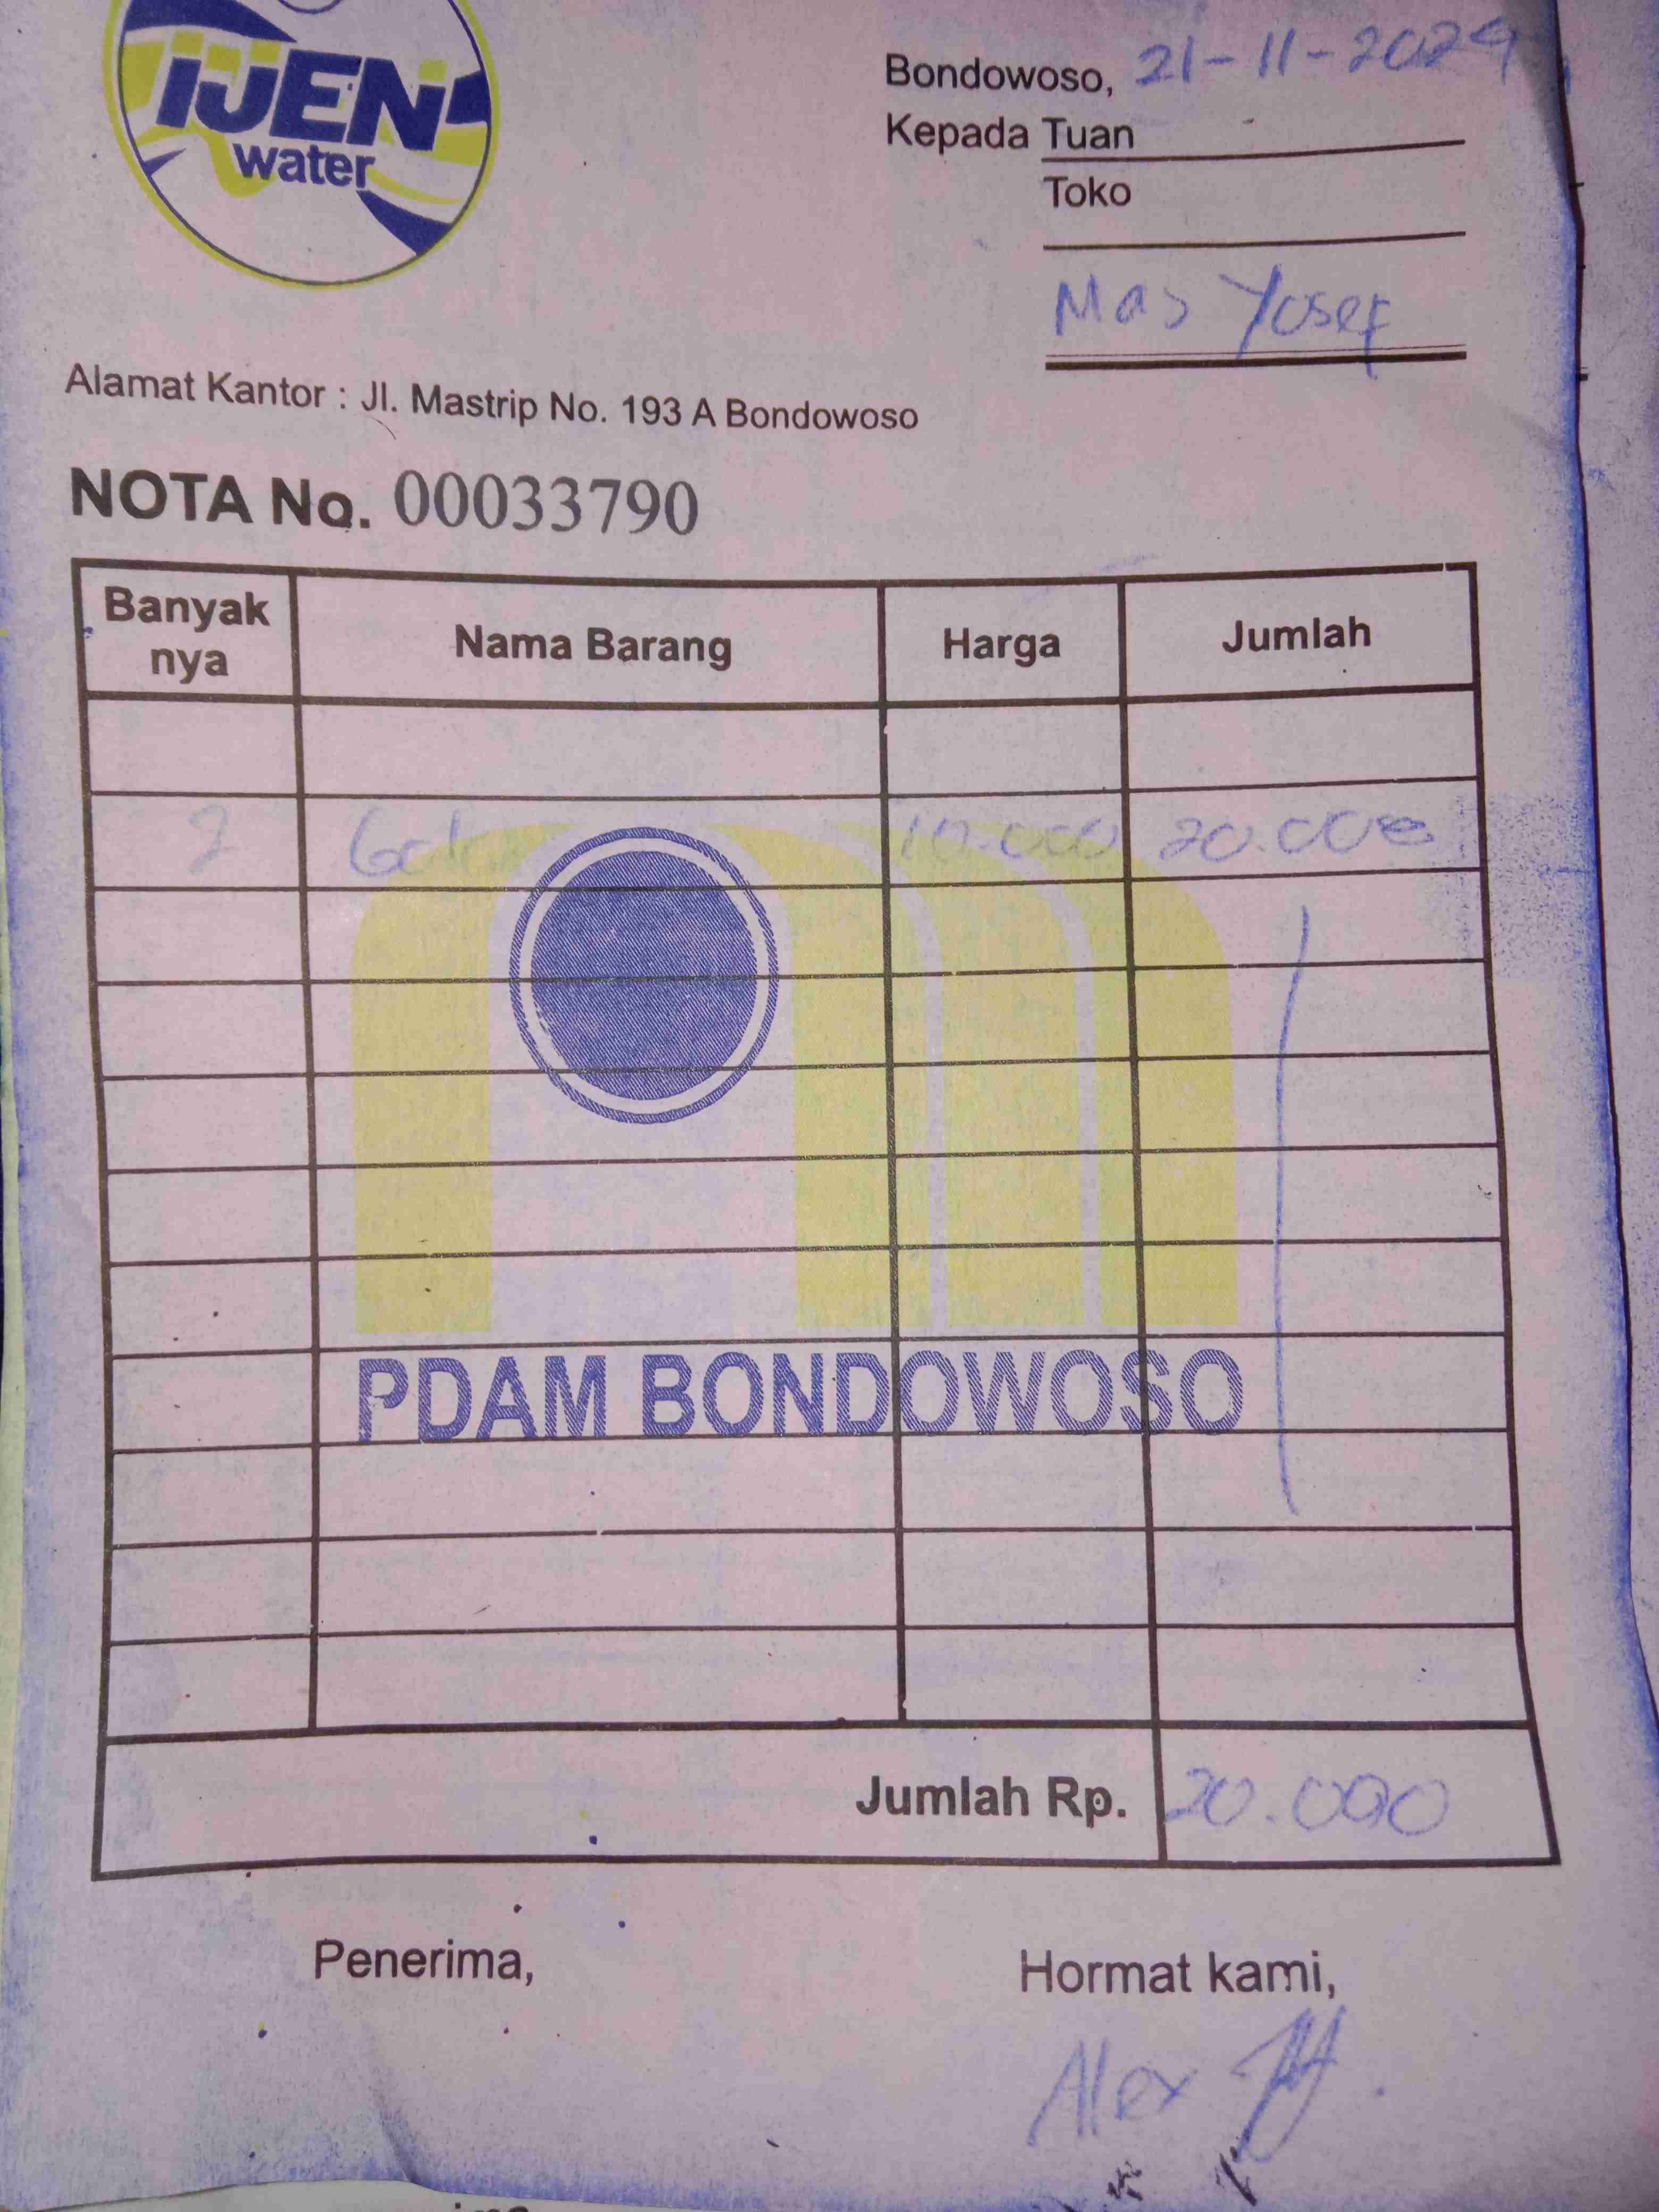 iJEN
water
Bondowoso, 21-11-2024
Kepada Tuan
Toko
Mas Yosef
Alamat Kantor : Jl. Mastrip No. 193 A Bondowoso
NOTA No. 00033790
Banyak nya Nama Barang Harga Jumlah
2 Gal 10.000 20.000
PDAM BONDOWOSO
Jumlah Rp. 20.000
Penerima, Hormat kami,
Alex